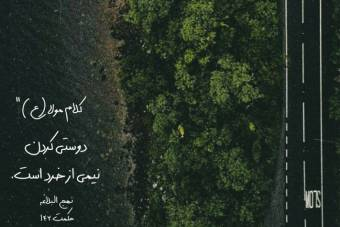 کلام مولا (ع)"
دوستی کردن
نیمی از خرد است.
نهج البلاغه
حکمت ۱۴۲
SLOW